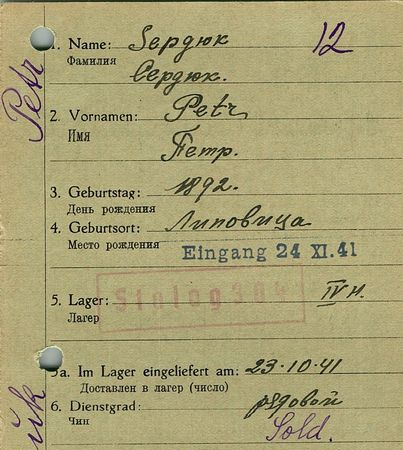 12
Petr
1. Name: Sердюк
Фамилия
Сердюк.
2. Vornamen: Petr,
Имя
Петр.
3. Geburtstag: 1892.
День рождения
4. Geburtsort: Липовица
Место рождения
Eingang 24 XI.41
Stalag 304
5. Lager: IV H.
Лагер
5a. Im Lager eingeliefert am: 23·10·41
Доставлен в лагер (число)
6. Dienstgrad: рядовой
Чин
Sold.